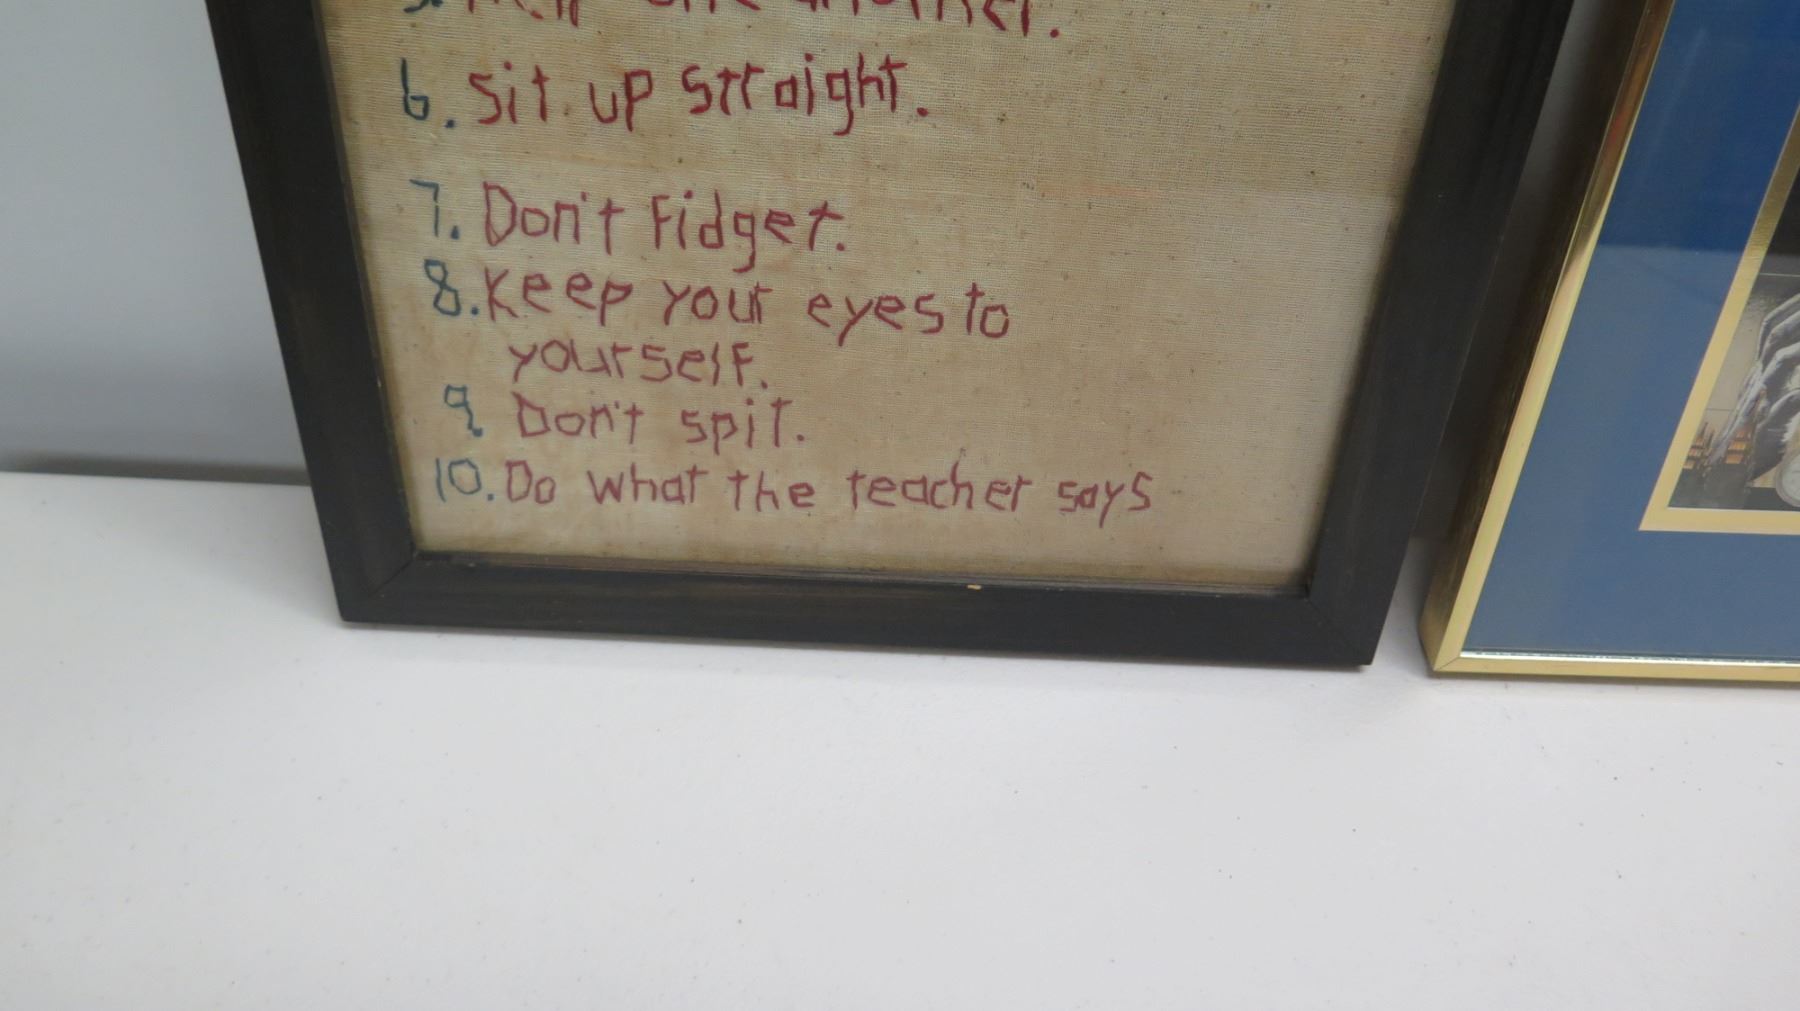 5. Help one another.
6. Sit up straight.
7. Don't Fidget.
8. Keep your eyes to
yourself.
9. Don't spit.
10. Do what the teacher says